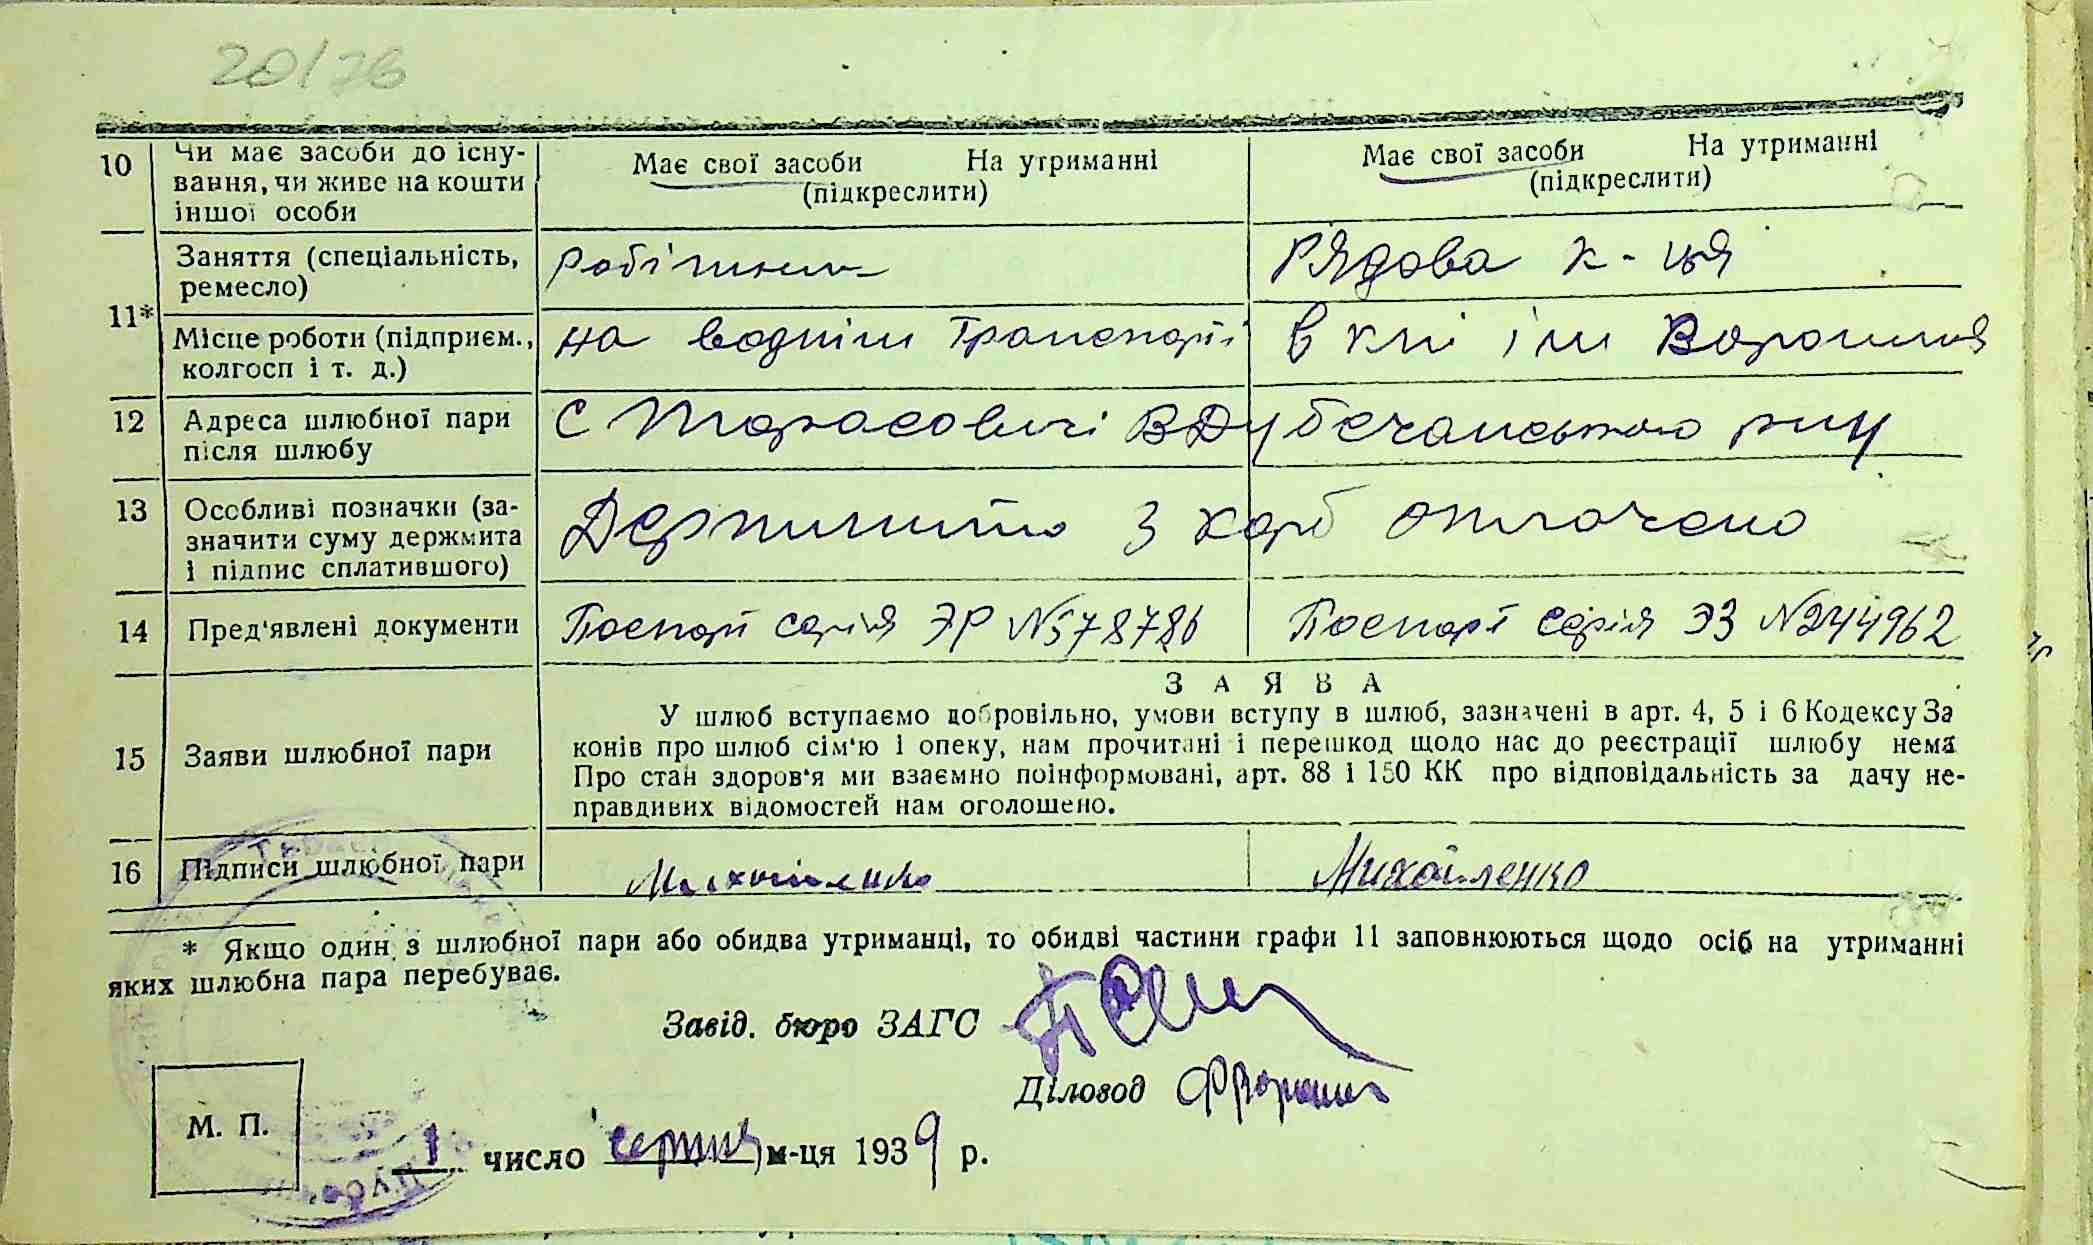 20/76
10 Чи має засоби до існу-
вання, чи живе на кошти
іншої особи
Має свої засоби На утриманні
(підкреслити)
Має свої засоби На утриманні
(підкреслити)
11*
Заняття (спеціальність,
ремесло)
робітник
Рядова к-ця
Місце роботи (підприєм.,
колгосп і т. д.)
на воднім транспорті
в клі ім Ворошил
12 Адреса шлюбної пари
після шлюбу
С Тарасовичі В Дубечанського р-ну
13 Особливі позначки (за-
значити суму держмита
і підпис сплатившого)
Держмито 3 карб оплачено
14 Пред'явлені документи
Паспорт серія ЭР № 578786
Паспорт серія ЭЗ № 244962
ЗАЯВА
15 Заяви шлюбної пари
У шлюб вступаємо добровільно, умови вступу в шлюб, зазначені в арт. 4, 5 і 6 Кодексу За
конів про шлюб сім'ю і опеку, нам прочитані і перешкод щодо нас до реєстрації шлюбу нема
Про стан здоров'я ми взаємно поінформовані, арт. 88 і 150 КК про відповідальність за дачу не-
правдивих відомостей нам оголошено.
16 Підписи шлюбної пари
Михайленко
Михайленко
* Якщо один з шлюбної пари або обидва утриманці, то обидві частини графи 11 заповнюються щодо осіб на утриманні
яких шлюбна пара перебуває.
Завід. бюро ЗАГС
Діловод
М. П.
1 число серпня м-ця 1939 р.